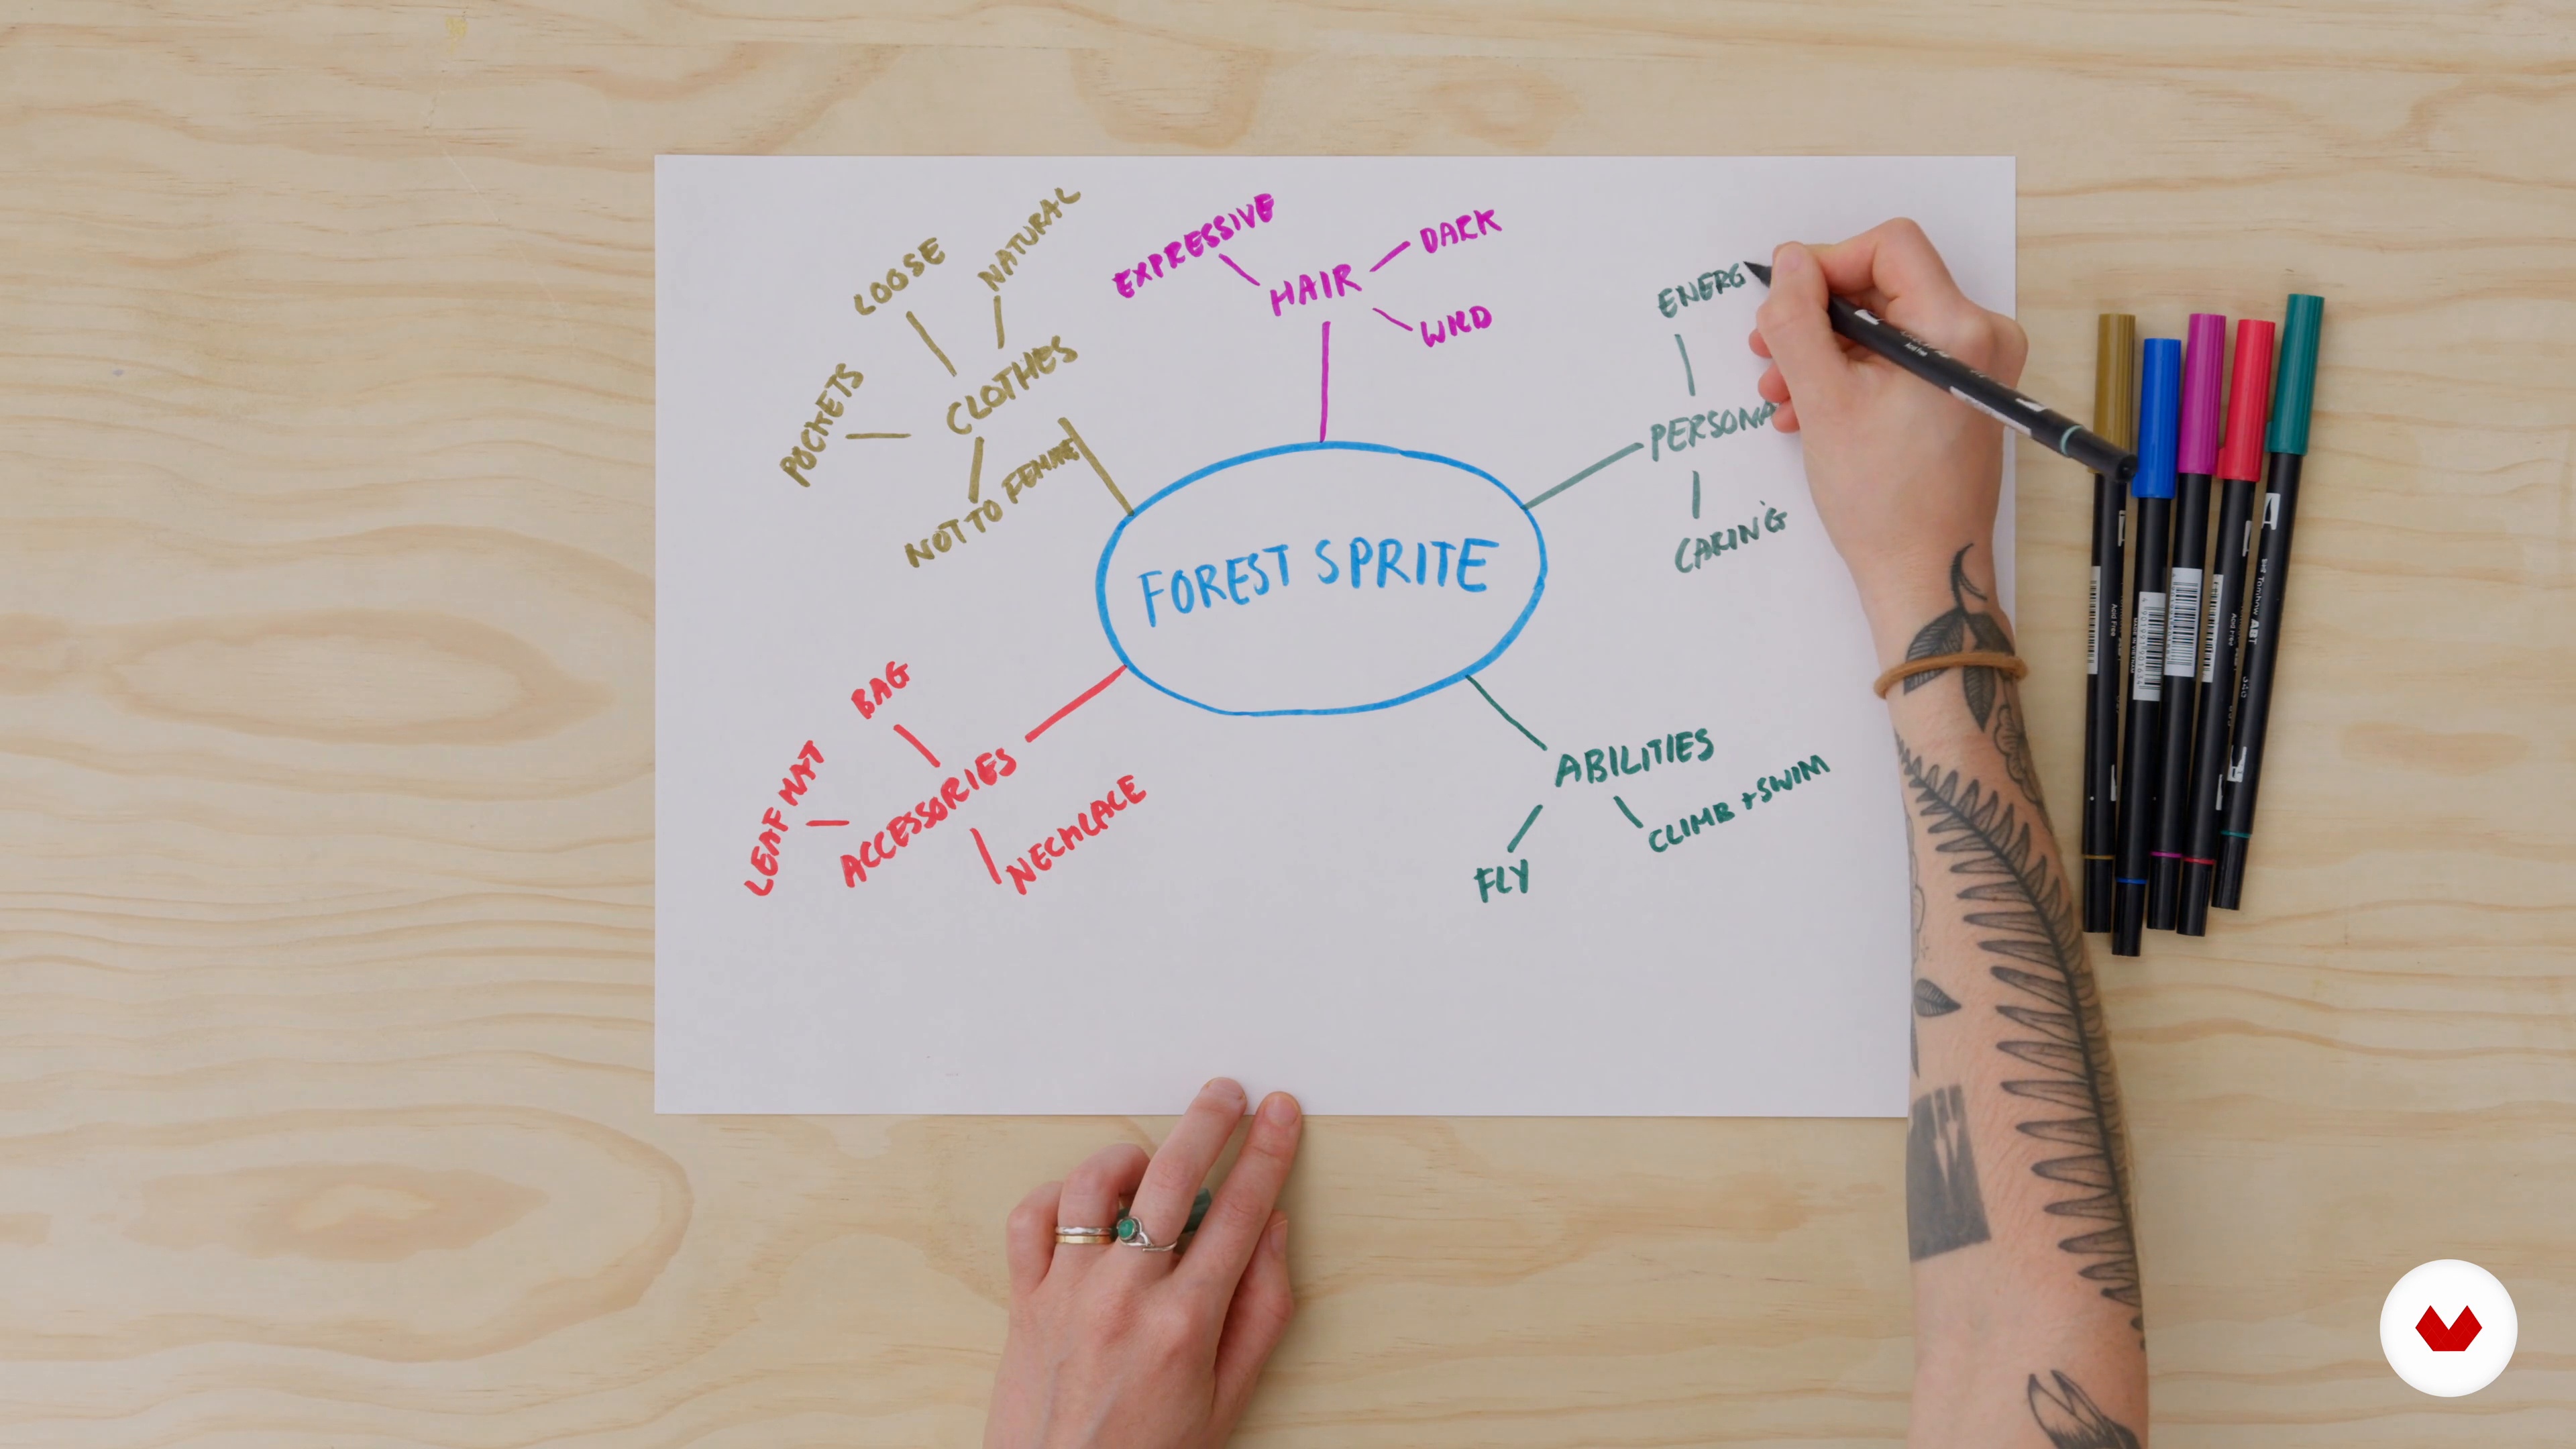 NATURAL
LOOSE
POCKETS
CLOTHES
NOT TO FEMME
EXPRESSIVE
DARK
HAIR
WILD
ENERG
PERSONA
CARING
FOREST SPRITE
BAG
LEAF HAT
ACCESSORIES
NECKLACE
ABILITIES
CLIMB + SWIM
FLY